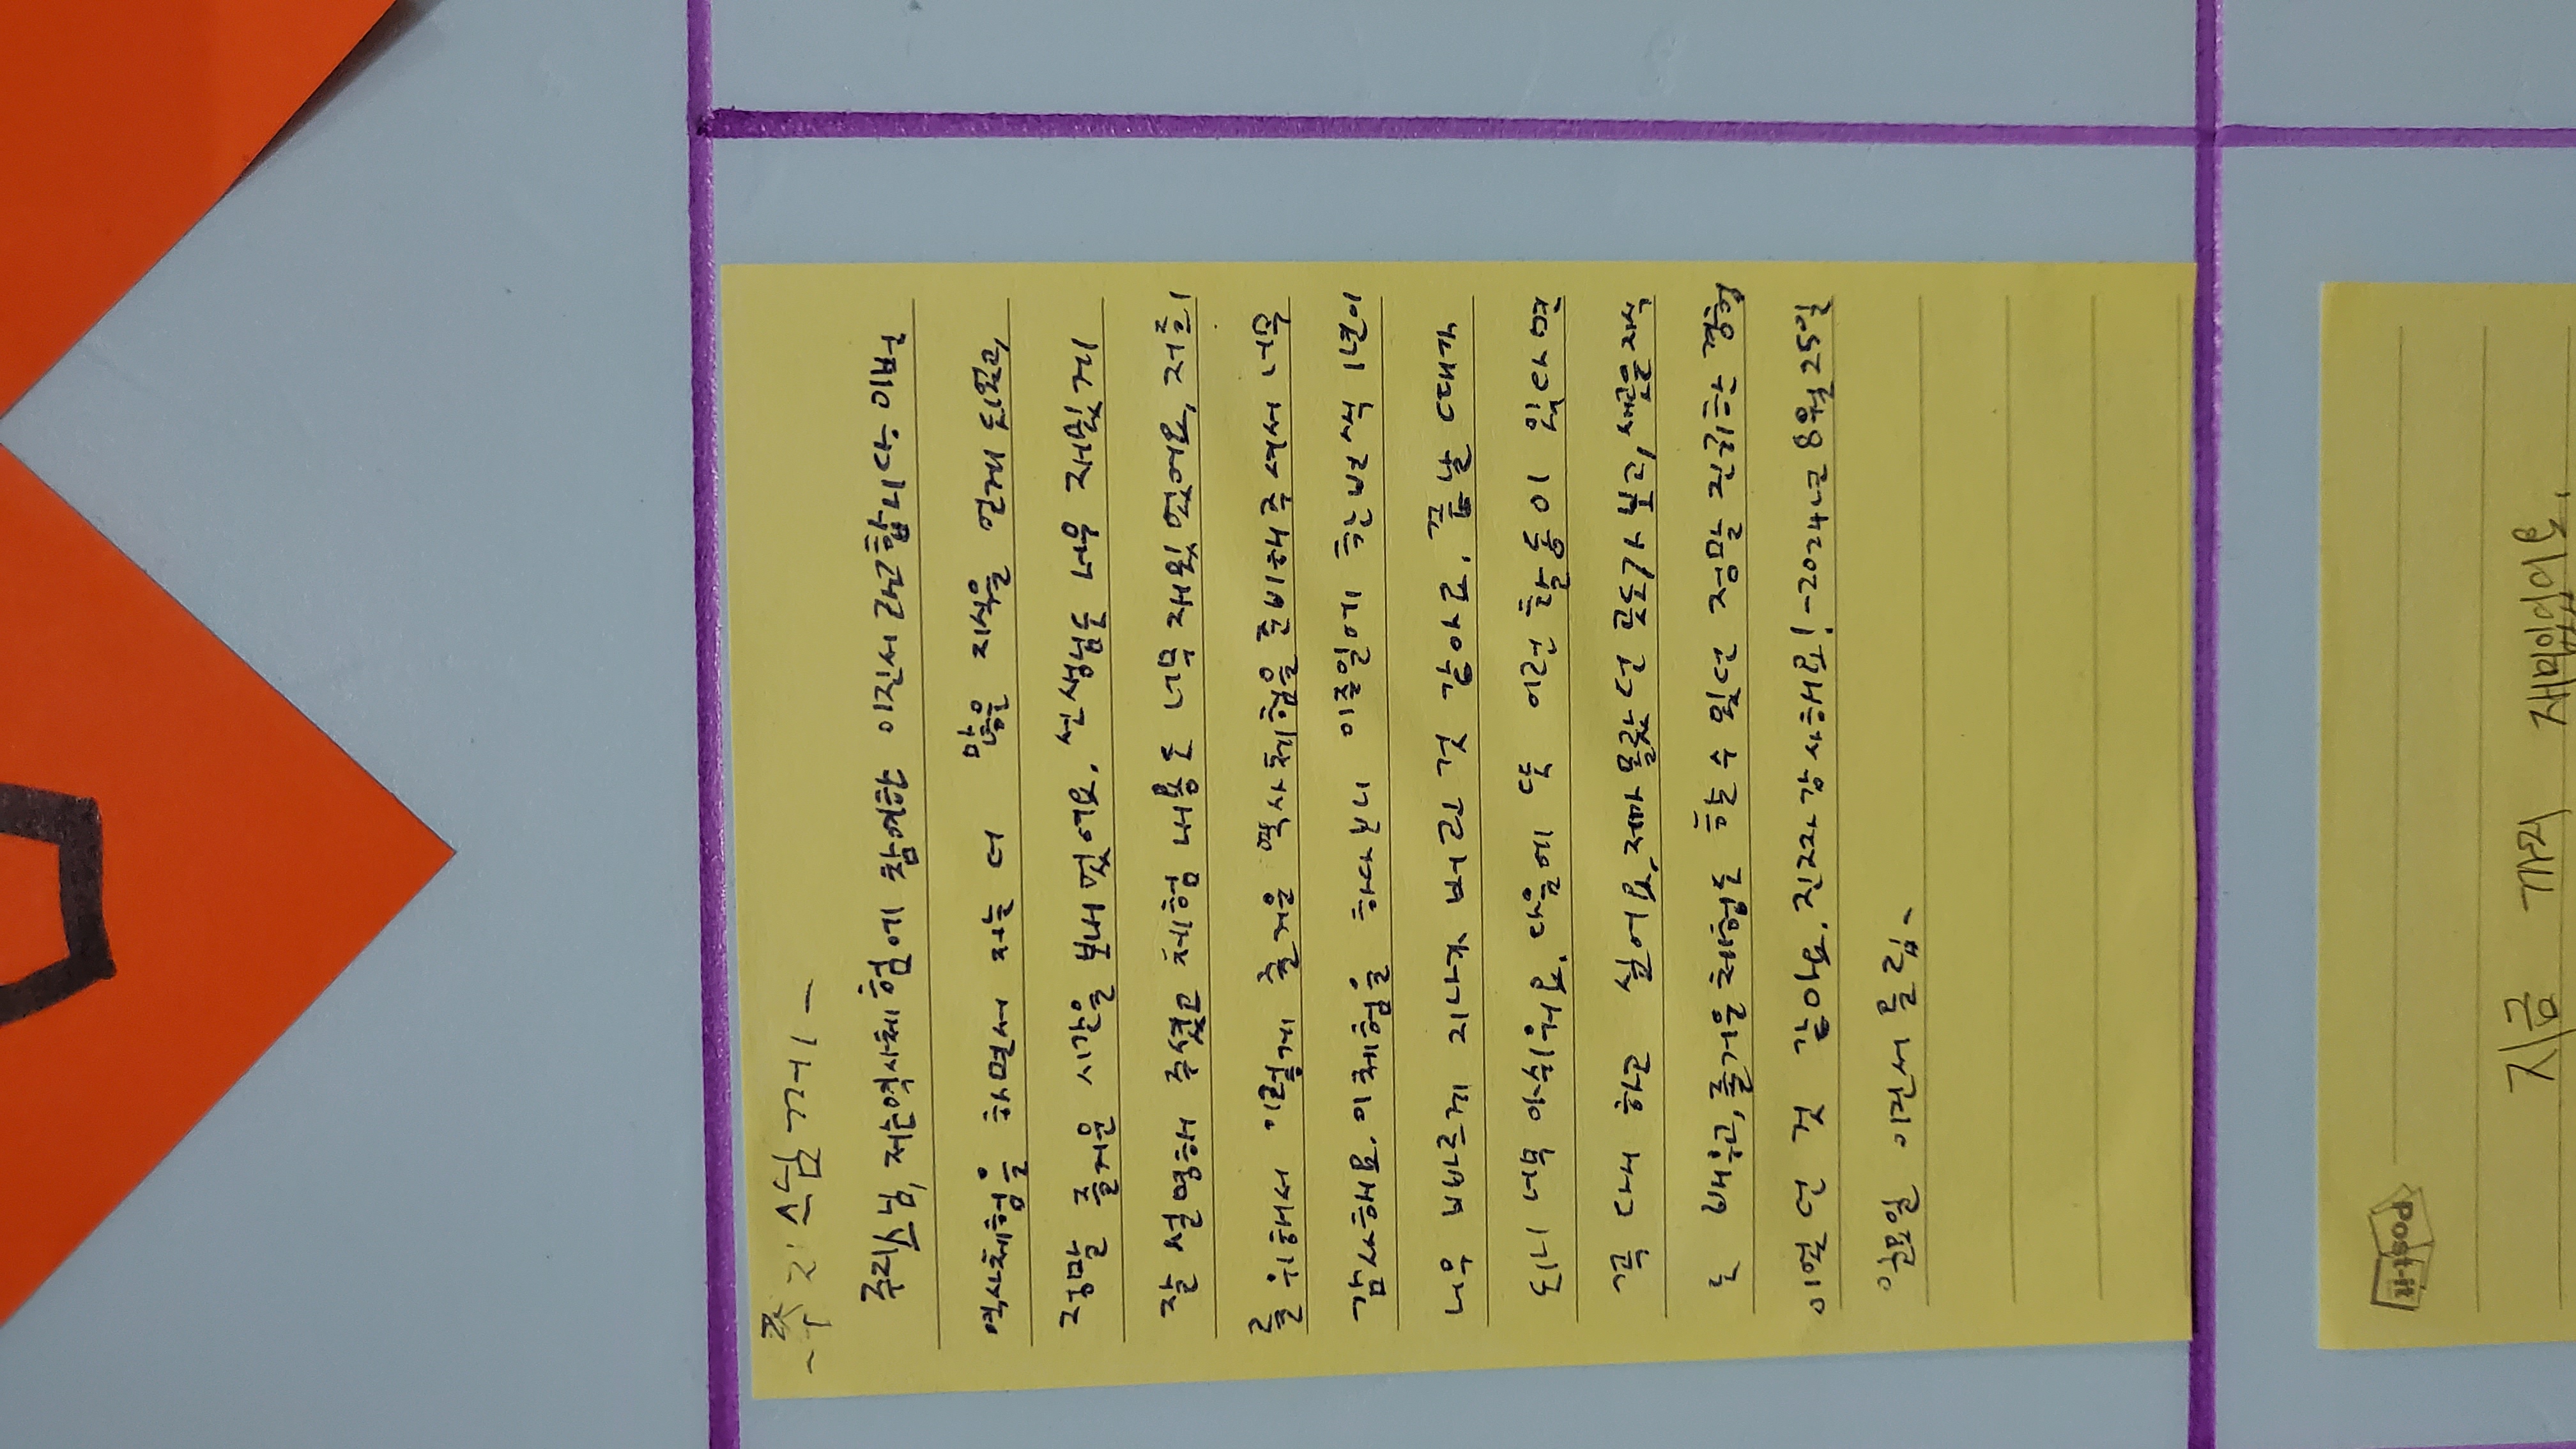 - 주지스님께 -
주지스님, 저는 역사체험에 참여한 이진서라고 합니다. 이번
역사체험을 하면서 저는 더 많은 지식을 얻게 되었고,
정말 즐거운 시간을 보내었어요. 선생님도 너무 재밌게
잘 설명해 주셨고 체험 내용도 너무 재밌었어요, 저희
를 위해서 이렇게 즐거운 역사체험을 준비해주셔서 너무
감사해요. 이 체험을 하다보니 이주일에 한번씩 1년이
너무 빠르게 지나가 버린 것 같아요. 끝날 때가
되니 너무 아쉬워요. 다음에 또 이런 활동이 있다면
꼭 다시 하고 싶어요. 제가 몰랐던 곳도 가 보고, 새로운 지식
도 배우고, 즐거운 체험도 할 수 있던 정말 진귀한 경험
이었던 것 같아요. 진짜 감사해요! - 2024년 8월 25일
일요일 이진서 올림 -
Post-it
지금 까지 재미있었